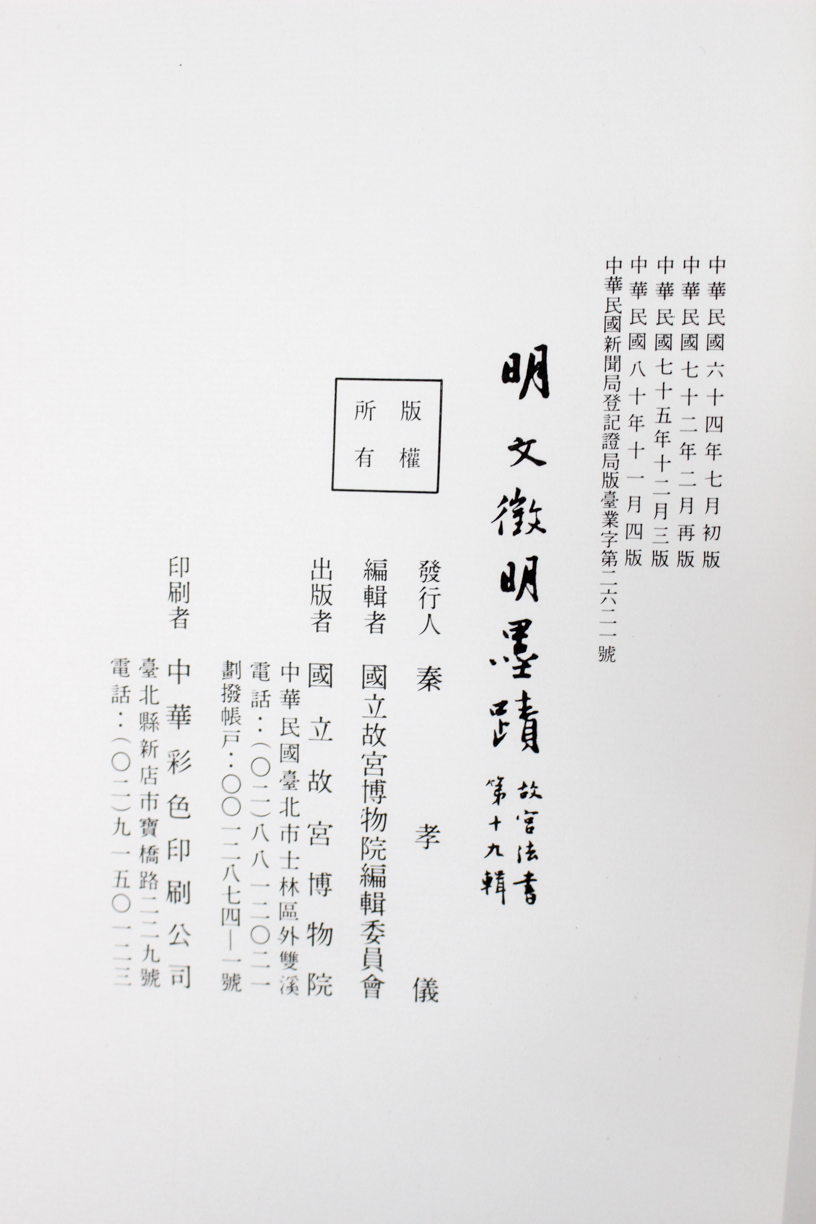 中華民國六十四年七月初版
中華民國七十二年二月再版
中華民國七十五年十二月三版
中華民國八十年十一月四版
中華民國新聞局登記證局版臺業字第二六二一號
明文徵明墨蹟
故宮法書
第十九輯
版權
所有
發行人 秦孝儀
編輯者 國立故宮博物院編輯委員會
出版者 國立故宮博物院
中華民國臺北市士林區外雙溪
電話：(〇二)八八一二〇二一
劃撥帳戶：〇〇一二八七四—一號
印刷者 中華彩色印刷公司
臺北縣新店市寶橋路二二九號
電話：(〇二)九一五〇一二三